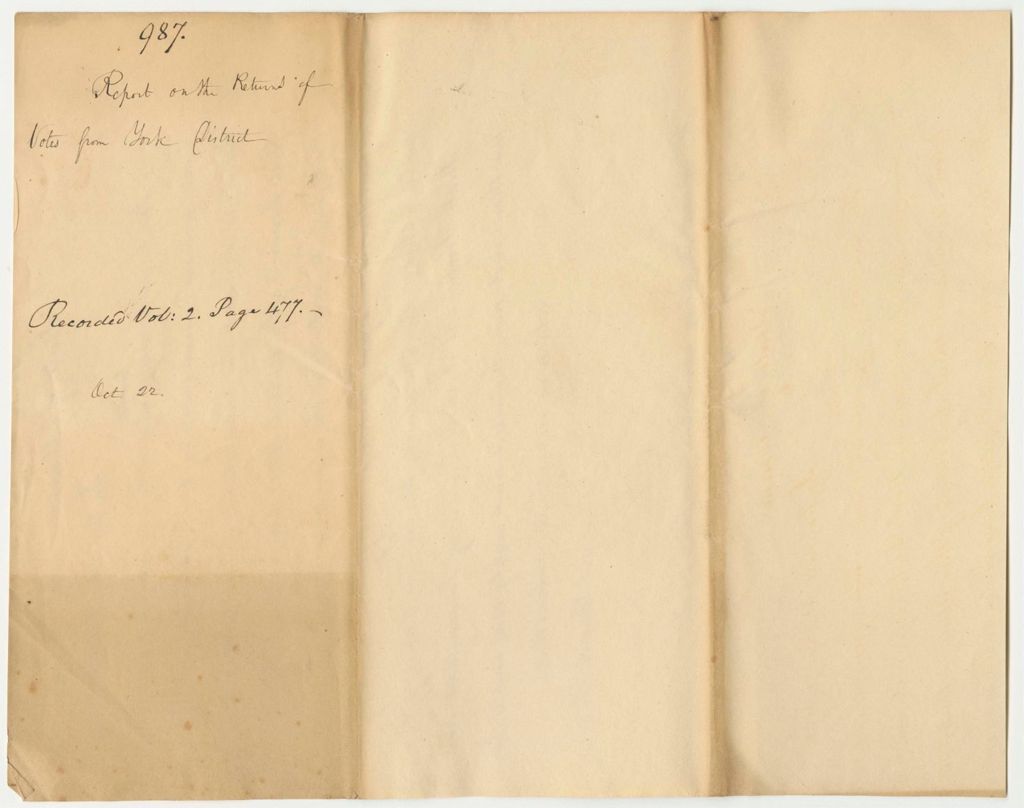 987.
Report on the Returns of
Votes from York District
Recorded Vol: 2. Page 477.
Oct 22.